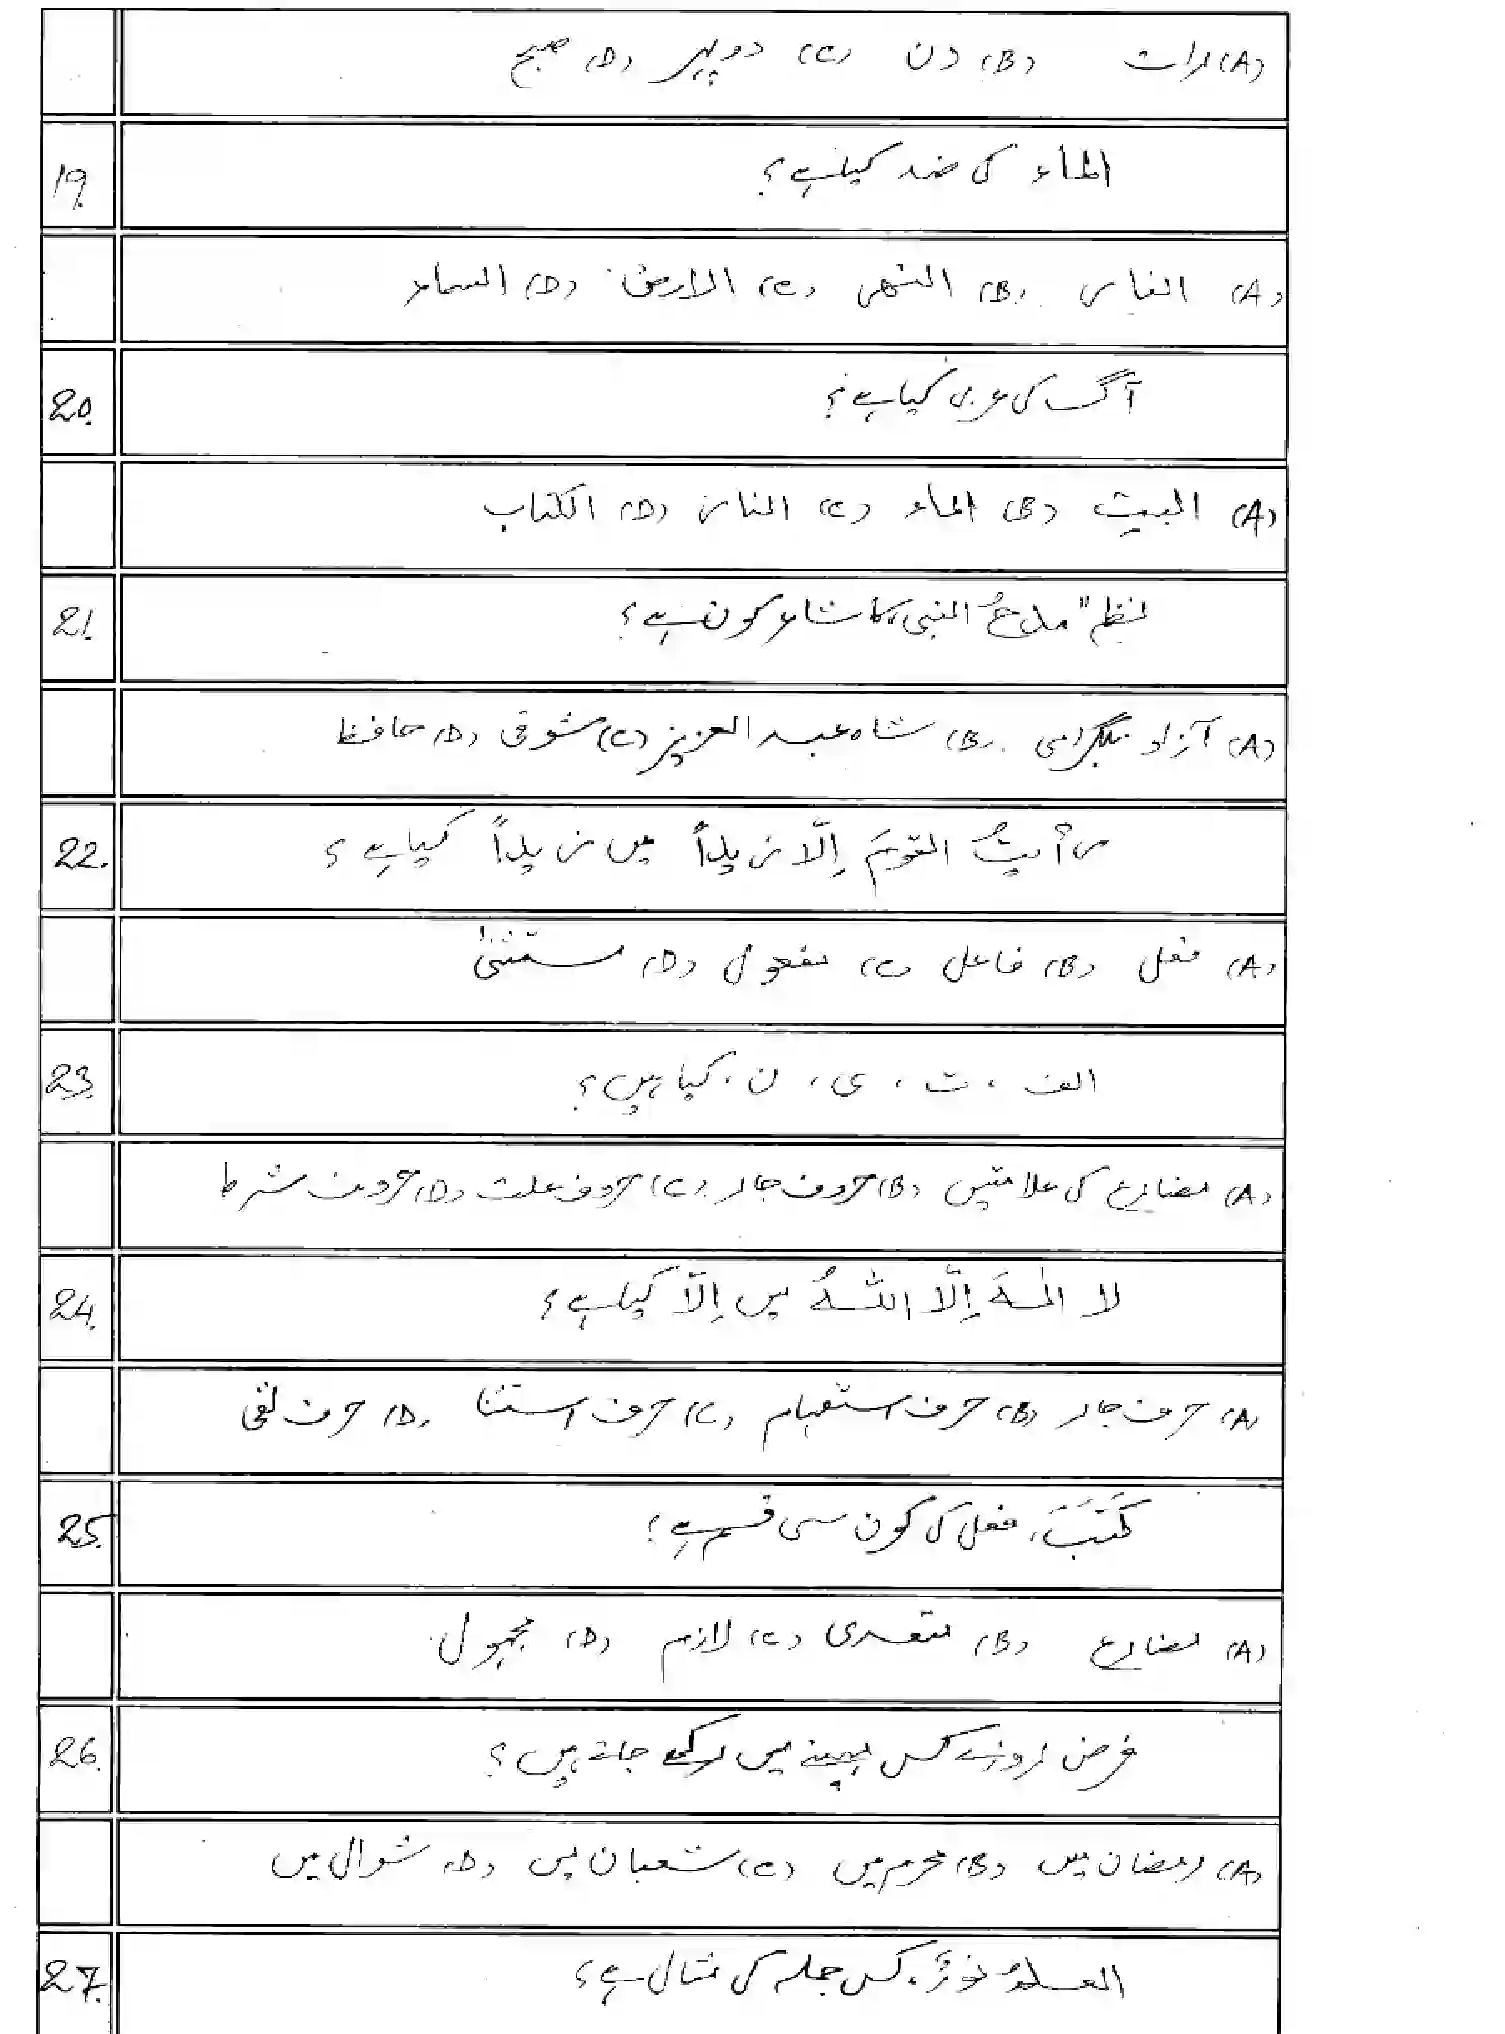 (A) رات (B) دن (C) دوپہر (D) صبح
19. الماء کی ضد کیا ہے؟
(A) النار (B) النھر (C) الارض (D) السماء
20. آگ کی عربی کیا ہے؟
(A) البیت (B) الماء (C) النار (D) الکتاب
21. نظم "مدحُ النبی" کا شاعر کون ہے؟
(A) آزاد بلگرامی (B) شاہ عبد العزیز (C) شوقی (D) حافظ
22. رأیتُ القومَ إلّا زیداً میں زیداً کیا ہے؟
(A) فعل (B) فاعل (C) مفعول (D) مستثنیٰ
23. الف، ت، ی، ن، کیا ہیں؟
(A) مضارع کی علامتیں (B) حروف جار (C) حروف علت (D) حروف شرط
24. لا الٰہَ إلّا اللہُ میں إلّا کیا ہے؟
(A) حرف جار (B) حرف استفہام (C) حرف استثنا (D) حرف نفی
25. کَتَبَ، فعل کی کون سی قسم ہے؟
(A) مضارع (B) متعدی (C) لازم (D) مجہول
26. فرض روزے کس مہینے میں رکھے جاتے ہیں؟
(A) رمضان میں (B) محرم میں (C) شعبان میں (D) شوال میں
27. العلمُ نورٌ، کس جملہ کی مثال ہے؟